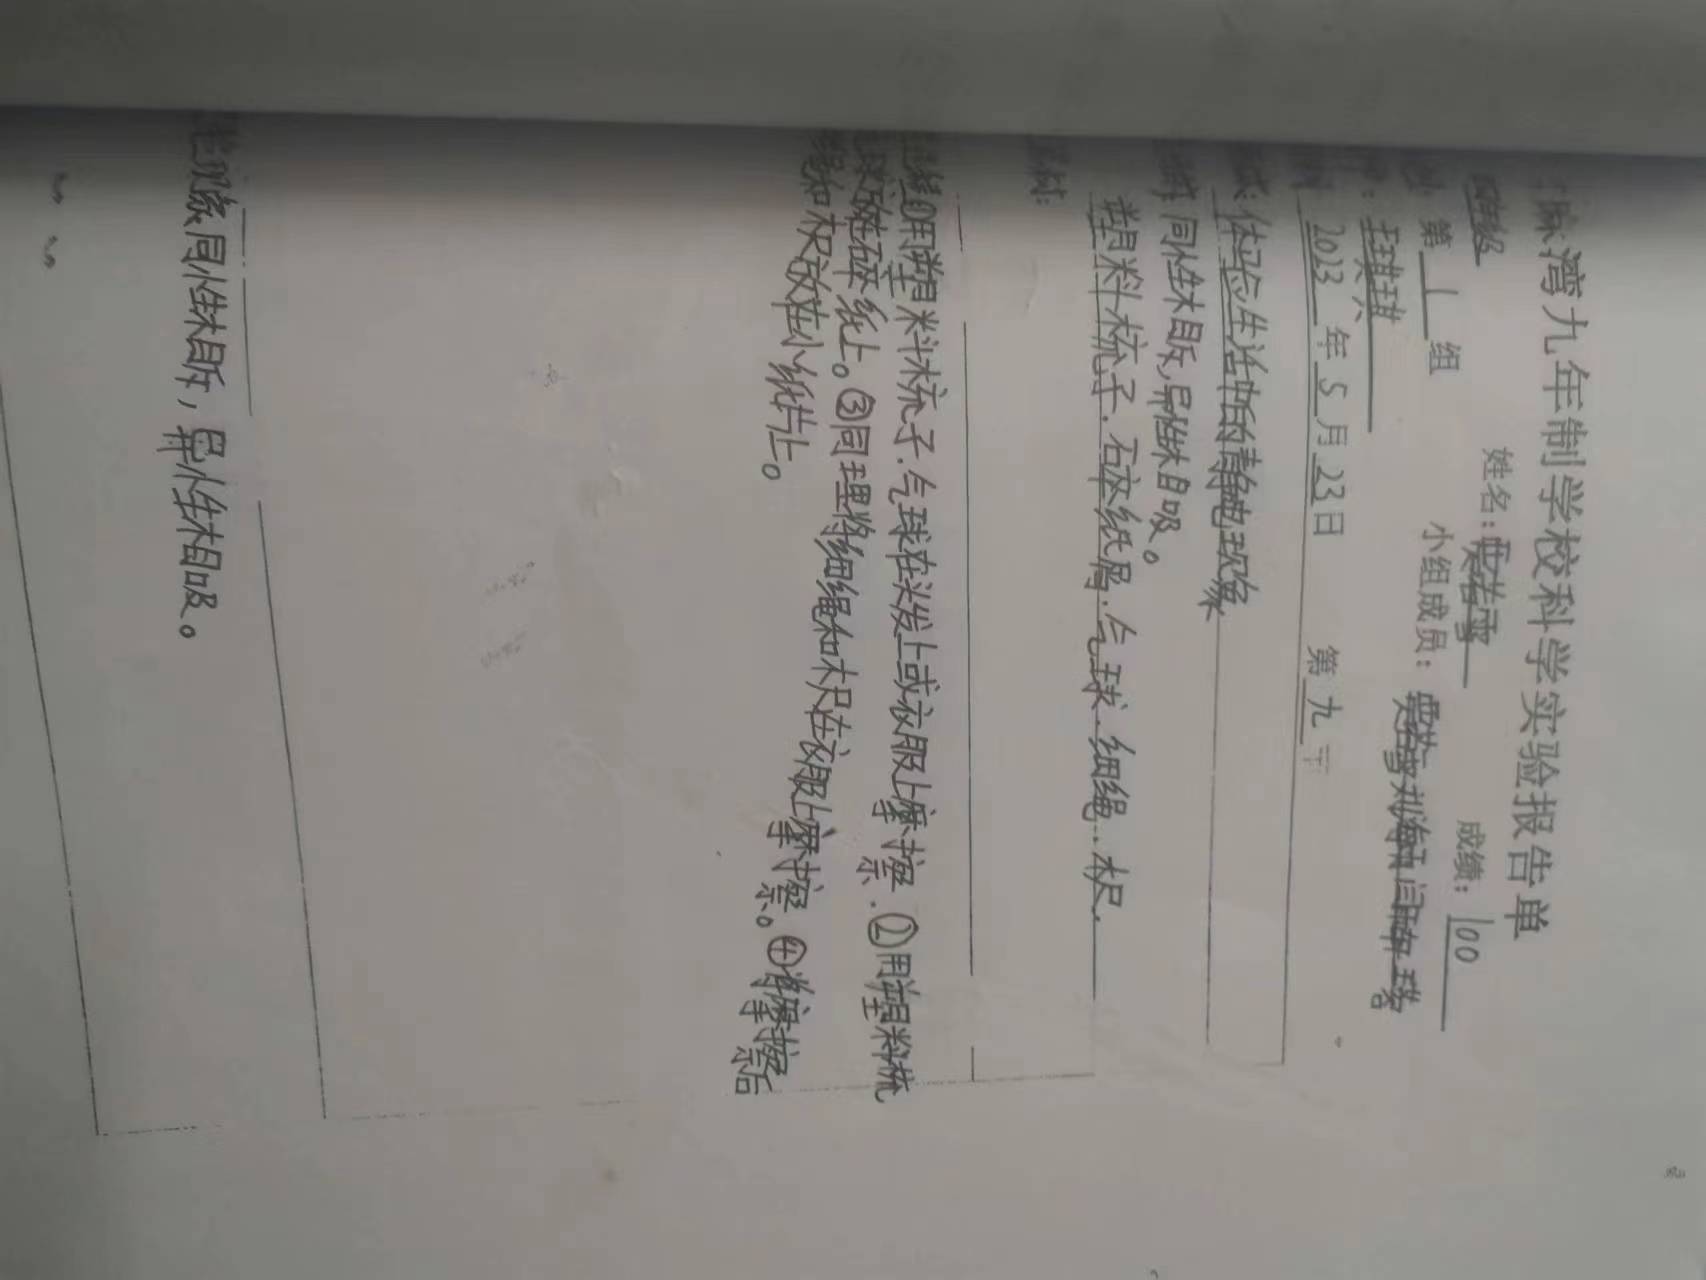 麻湾九年制学校科学实验报告单
姓名: 贾若雪 成绩: 100
第 1 组 小组成员: 贾若雪 刘海
2023 年 5 月 23 日 第 九 节
体验生活中的静电现象
同性相斥,异性相吸。
塑料梳子. 碎纸屑. 气球. 细绳. 木尺.
材:
①用塑料梳子.气球在头发上或衣服上摩擦. ②用塑料梳
放在碎纸上。③同理将细绳和木尺在衣服上摩擦。④将摩擦后
绳和木尺放在小纸片上。
现象同性相斥,异性相吸。